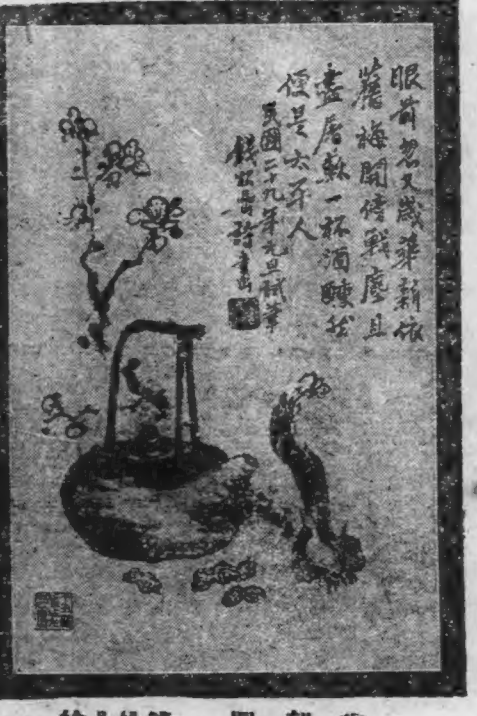 眼前忽又歲華新依
舊梅開傍戰塵且
盡屠蘇一杯酒醺然
便是太平人
民國二十九年元旦試筆
錢詩書畫